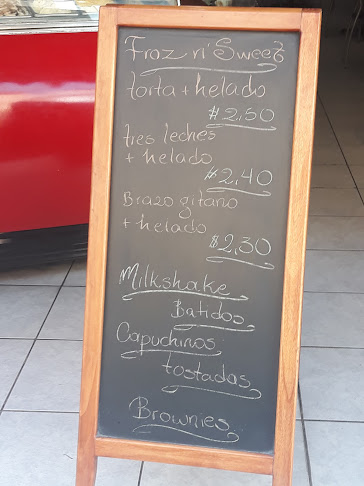 Froz n' Sweet
torta + helado
$2,50
tres leches
+ helado
$2,40
Brazo gitano
+ helado
$2,30
Milkshake
Batidos
Capuchinos
tostadas
Brownies